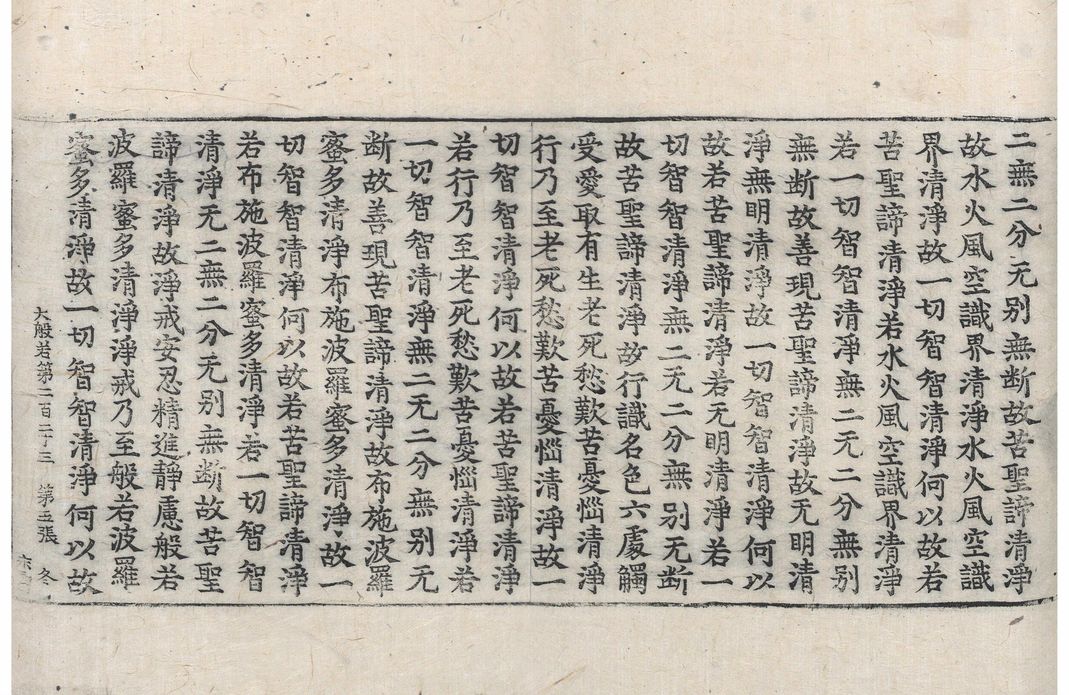 二無二分无别無断故苦聖諦清淨
故水火風空識界清淨水火風空識
界清淨故一切智智清淨何以故若
苦聖諦清淨若水火風空識界清淨
若一切智智清淨無二无二分無别
無断故善現苦聖諦清淨故无明清
淨無明清淨故一切智智清淨何以
故若苦聖諦清淨若无明清淨若一
切智智清淨無二无二分無别无断
故苦聖諦清淨故行識名色六處觸
受愛取有生老死愁歎苦憂惱清淨
行乃至老死愁歎苦憂惱清淨故一
切智智清淨何以故若苦聖諦清淨
若行乃至老死愁歎苦憂惱清淨若
一切智智清淨無二无二分無别无
断故善現苦聖諦清淨故布施波羅
蜜多清淨布施波羅蜜多清淨故一
切智智清淨何以故若苦聖諦清淨
若布施波羅蜜多清淨若一切智智
清淨无二無二分无别無断故苦聖
諦清淨故淨戒安忍精進靜慮般若
波羅蜜多清淨淨戒乃至般若波羅
蜜多清淨故一切智智清淨何以故
大般若第二百二十三 第五張 冬